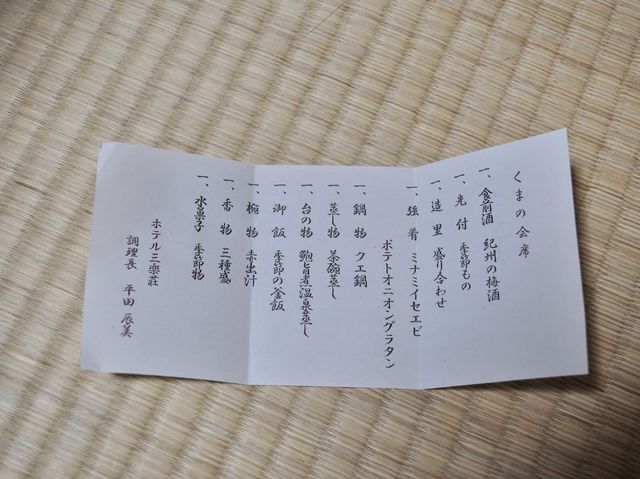 くまの会席
一、食前酒 紀州の梅酒
一、先付 季節もの
一、造里 盛り合わせ
一、強肴 ミナミイセエビ
ポテトオニオングラタン
一、鍋物 クエ鍋
一、蒸し物 茶碗蒸し
一、台の物 鮑旨煮温泉蒸し
一、御飯 季節の釜飯
一、椀物 赤出汁
一、香物 三種盛
一、水菓子 季節物
ホテル三楽荘
調理長 平田辰美